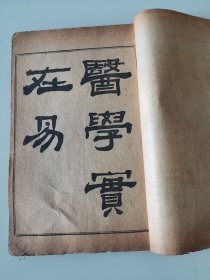 醫學實
在易